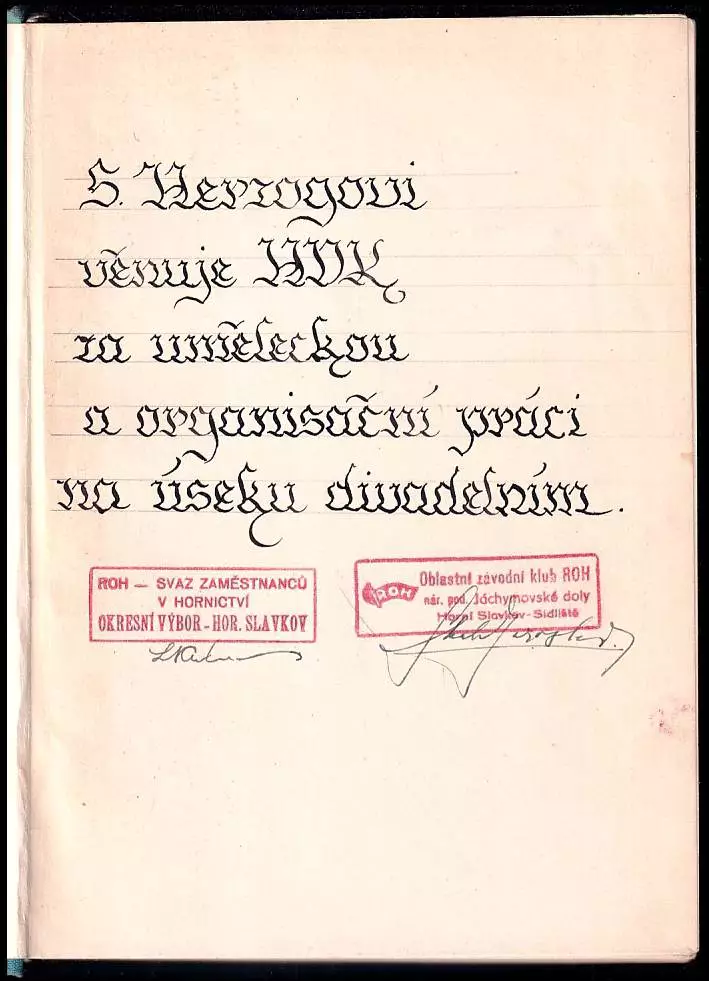 S. Herzogovi
věnuje HDK
za uměleckou
a organisační práci
na úseku divadelním.
ROH — SVAZ ZAMĚSTNANCŮ
V HORNICTVÍ
OKRESNÍ VÝBOR - HOR. SLAVKOV
Oblastní závodní klub ROH
ROH
nár. pod. Jáchymovské doly
Horní Slavkov - Sídliště